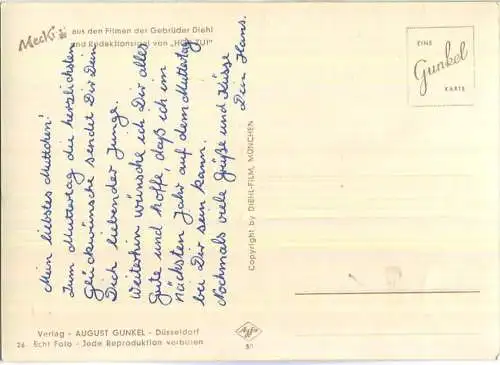 Mecki: aus den Filmen der Gebrüder Diehl
und Redaktionsigel von "HÖR ZU!"
Mein liebstes Muttchen!
Zum Muttertag die herzlichsten
Glückwünsche sendet Dir Dein
Dich liebender Junge.
Weiterhin wünsche ich Dir alles
Gute und hoffe, daß ich im
nächsten Jahr auf dem Muttertag
bei Dir sein kann.
Nochmals viele Grüße und Küsse
Dein Hans.
Copyright by DIEHL-FILM, MÜNCHEN
EINE
Gunkel
KARTE
Verlag - AUGUST GUNKEL - Düsseldorf
26 Echt Foto - Jede Reproduktion verboten
Agfa